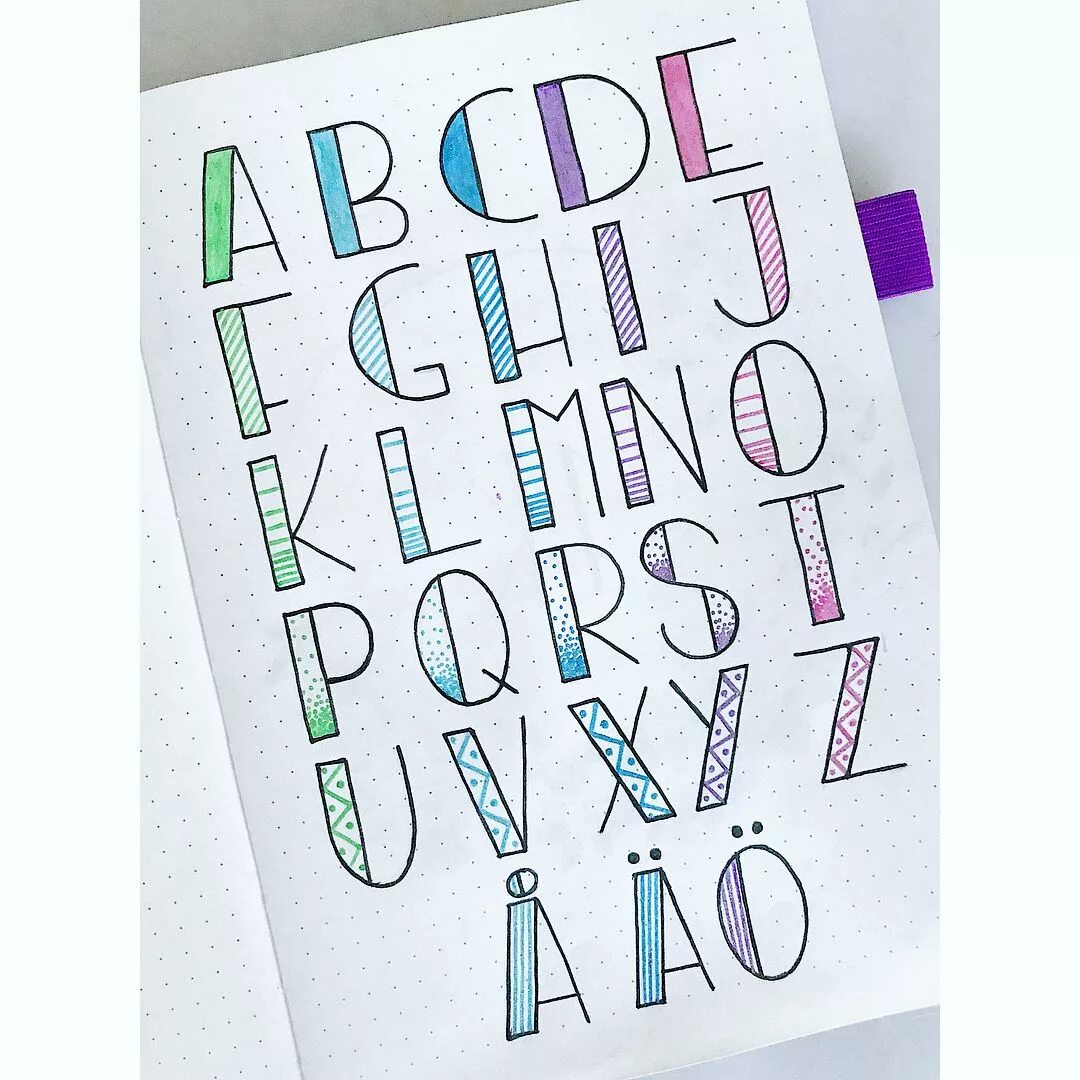 ABCDE
FGHIJ
KLMNO
PQRST
UVXYZ
ÅÄÖ